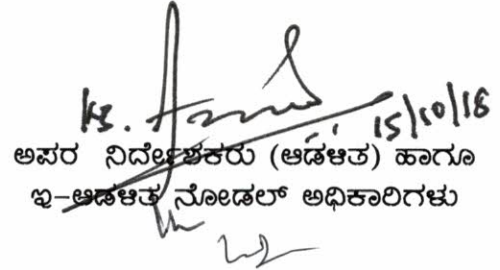 15/10/18
ಅಪರ ನಿರ್ದೇಶಕರು (ಆಡಳಿತ) ಹಾಗೂ
ಇ-ಆಡಳಿತ ನೋಡಲ್ ಅಧಿಕಾರಿಗಳು